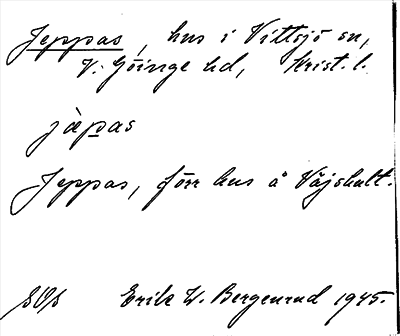 Jeppas, hus i Vittsjö sn,
V. Göinge hd, Krist. l.
jàpas
Jeppas, förr hus å Väjshult.
Erik W. Bergenrud 1945.